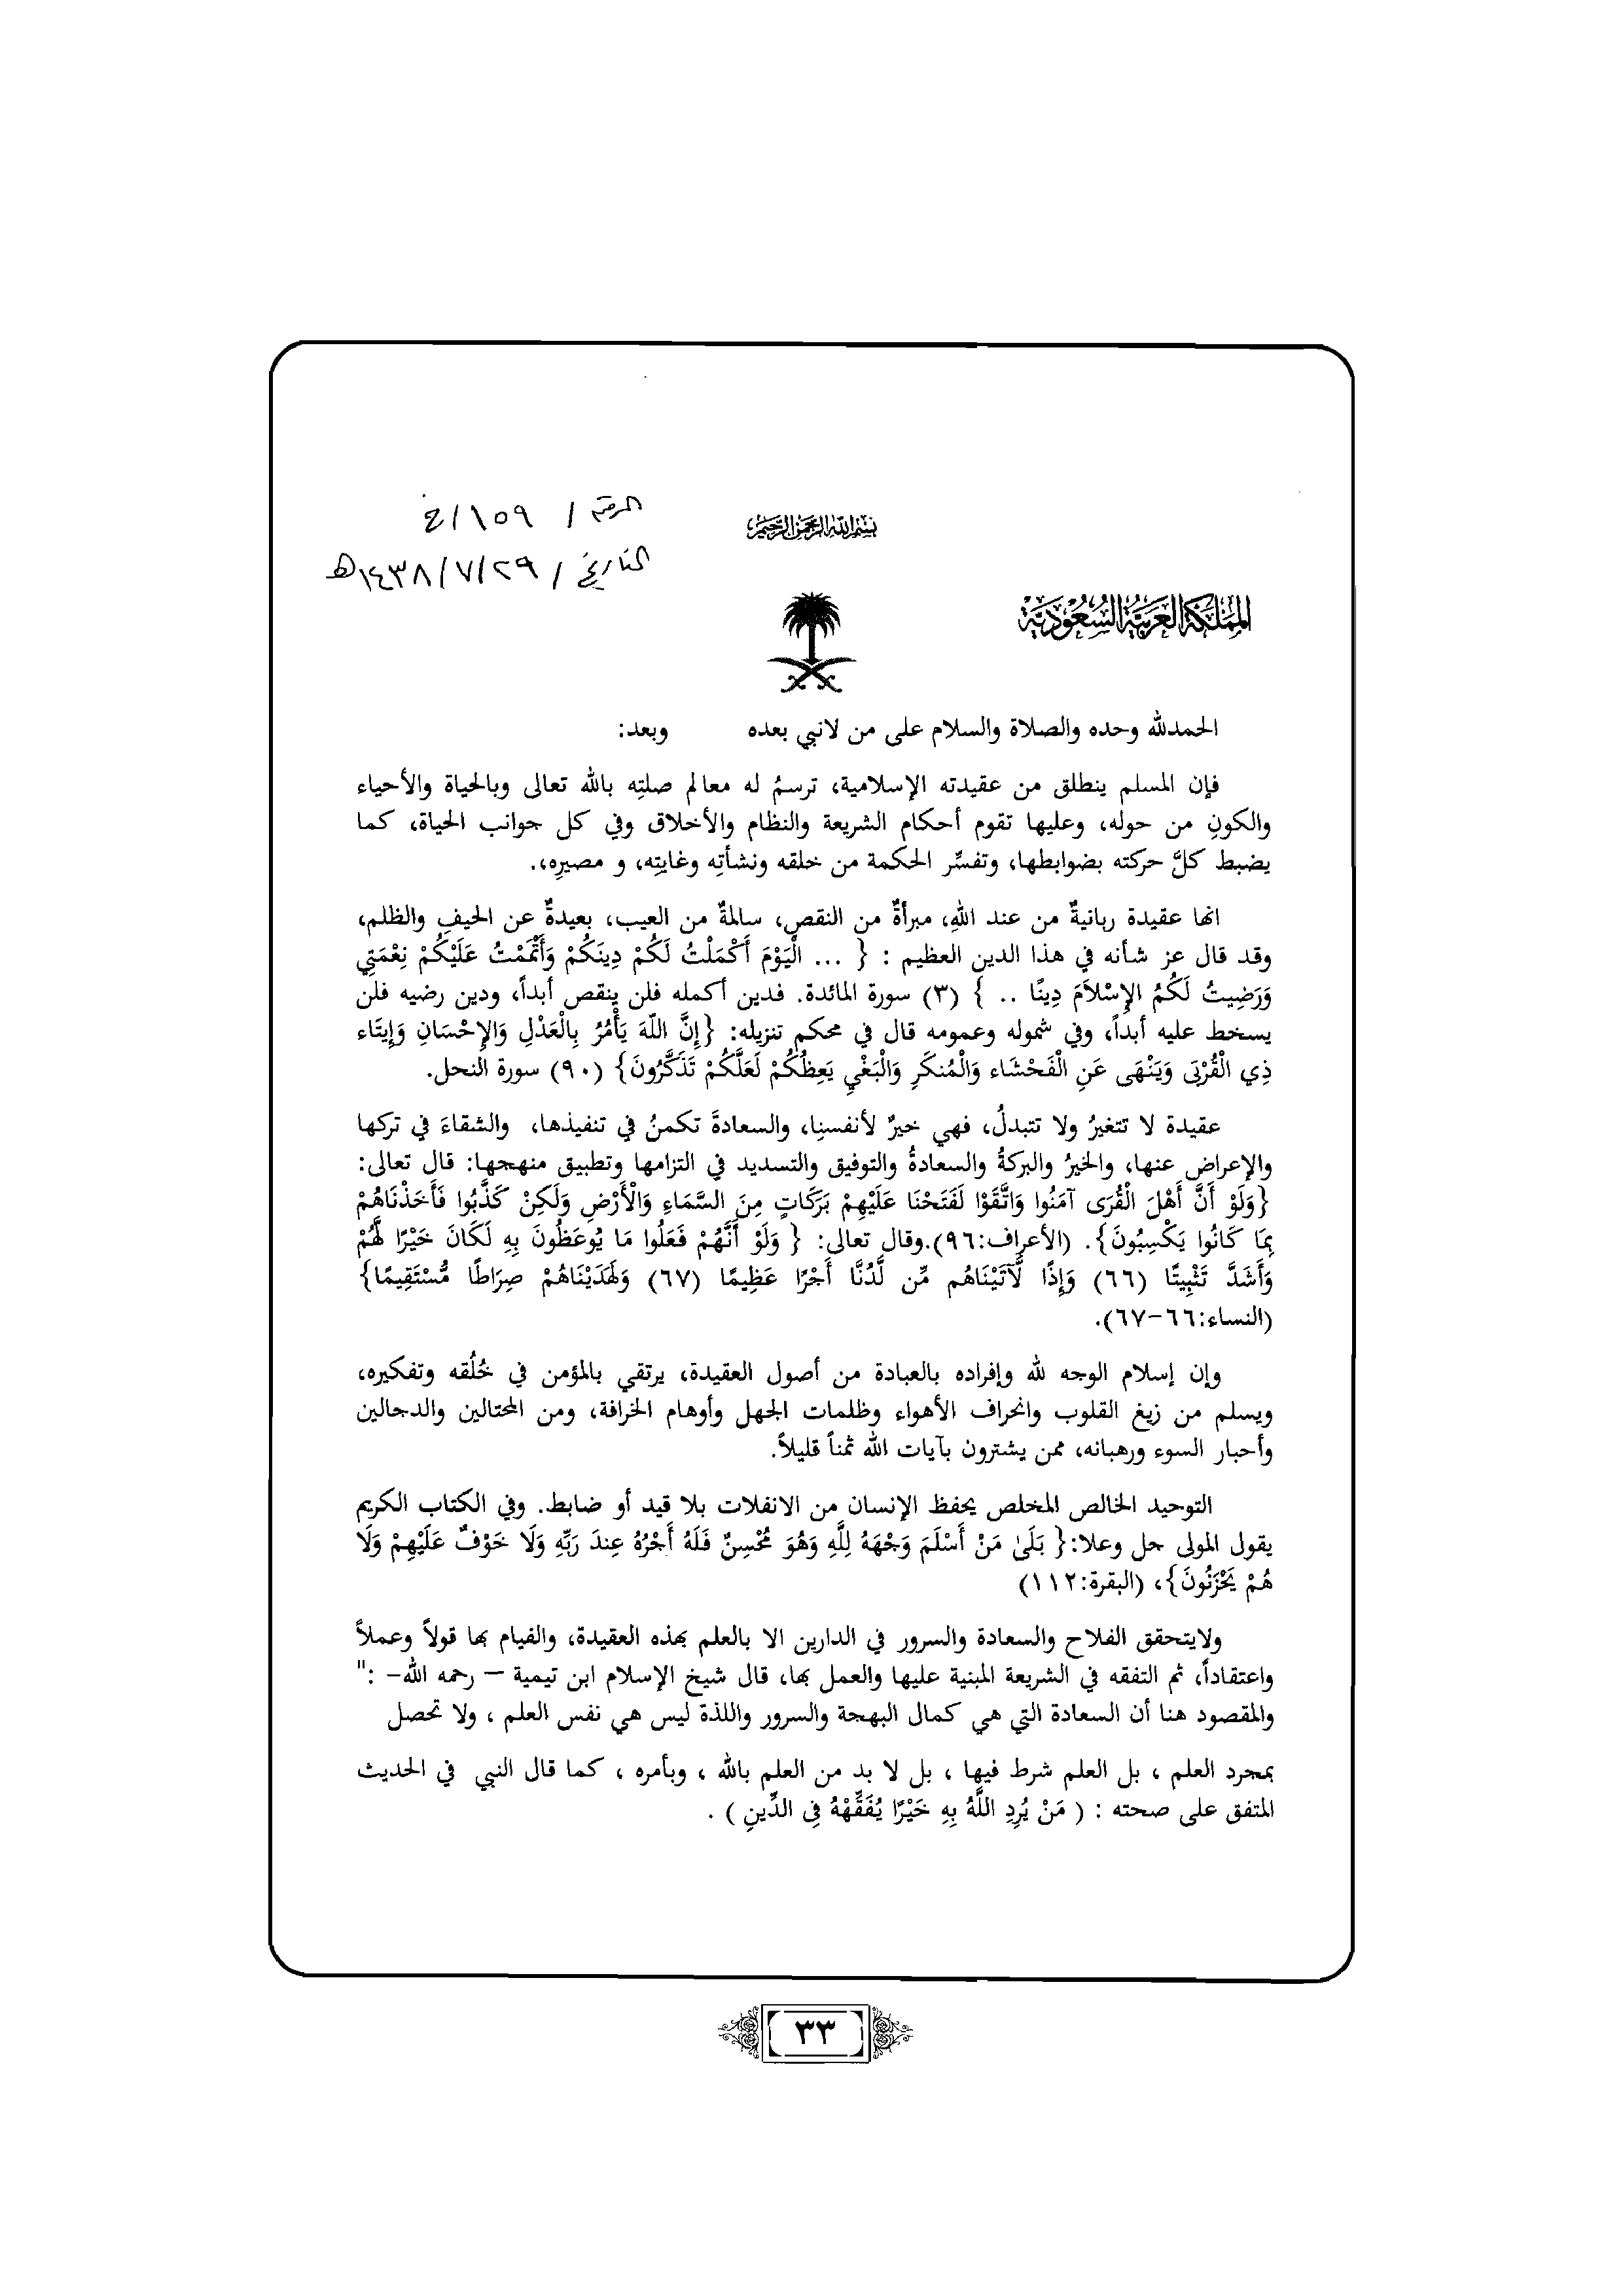 بسم الله الرحمن الرحيم
الرقم / ١٥٩/خ
التاريخ / ١٤٣٨/٧/٢٩هـ
المملكة العربية السعودية
الحمدلله وحده والصلاة والسلام على من لانبي بعده وبعد:
فإن المسلم ينطلق من عقيدته الإسلامية، ترسمُ له معالم صلتِه بالله تعالى وبالحياة والأحياء
والكونِ من حوله، وعليها تقوم أحكام الشريعة والنظام والأخلاق وفي كل جوانب الحياة، كما
يضبط كلَّ حركته بضوابطها، وتفسِّر الحكمة من خلقه ونشأتِه وغايتِه، و مصيرِه،.
انها عقيدة ربانيةٌ من عند اللهِ، مبرأةٌ من النقصِ، سالمةٌ من العيب، بعيدةٌ عن الحيفِ والظلم،
وقد قال عز شأنه في هذا الدين العظيم : { ... الْيَوْمَ أَكْمَلْتُ لَكُمْ دِينَكُمْ وَأَتْمَمْتُ عَلَيْكُمْ نِعْمَتِي
وَرَضِيتُ لَكُمُ الإِسْلاَمَ دِينًا .. } (٣) سورة المائدة. فدين أكمله فلن ينقص أبداً، ودين رضيه فلن
يسخط عليه أبداً، وفي شموله وعمومه قال في محكم تنزيله: {إِنَّ اللّهَ يَأْمُرُ بِالْعَدْلِ وَالإِحْسَانِ وَإِيتَاء
ذِي الْقُرْبَى وَيَنْهَى عَنِ الْفَحْشَاء وَالْمُنكَرِ وَالْبَغْيِ يَعِظُكُمْ لَعَلَّكُمْ تَذَكَّرُونَ} (٩٠) سورة النحل.
عقيدة لا تتغيرُ ولا تتبدلُ، فهي خيرٌ لأنفسنِا، والسعادةَ تكمنُ في تنفيذها، والشقاءَ في تركها
والإعراض عنها، والخيرُ والبركةُ والسعادةُ والتوفيق والتسديد في التزامها وتطبيق منهجها: قال تعالى:
{وَلَوْ أَنَّ أَهْلَ الْقُرَى آمَنُوا وَاتَّقَوْا لَفَتَحْنَا عَلَيْهِمْ بَرَكَاتٍ مِنَ السَّمَاءِ وَالْأَرْضِ وَلَكِنْ كَذَّبُوا فَأَخَذْنَاهُمْ
بِمَا كَانُوا يَكْسِبُونَ}. (الأعراف:٩٦).وقال تعالى: { وَلَوْ أَنَّهُمْ فَعَلُوا مَا يُوعَظُونَ بِهِ لَكَانَ خَيْرًا لَّهُمْ
وَأَشَدَّ تَثْبِيتًا (٦٦) وَإِذًا لَّآتَيْنَاهُم مِّن لَّدُنَّا أَجْرًا عَظِيمًا (٦٧) وَلَهَدَيْنَاهُمْ صِرَاطًا مُّسْتَقِيمًا}
(النساء:٦٦-٦٧).
وإن إسلام الوجه لله وإفراده بالعبادة من أصول العقيدة، يرتقي بالمؤمن في خُلُقه وتفكيره،
ويسلم من زيغ القلوب وانحراف الأهواء وظلمات الجهل وأوهام الخرافة، ومن المحتالين والدجالين
وأحبار السوء ورهبانه، ممن يشترون بآيات الله ثمناً قليلاً.
التوحيد الخالص المخلص يحفظ الإنسان من الانفلات بلا قيد أو ضابط. وفي الكتاب الكريم
يقول المولى جل وعلا:{ بَلَىٰ مَنْ أَسْلَمَ وَجْهَهُ لِلَّهِ وَهُوَ مُحْسِنٌ فَلَهُ أَجْرُهُ عِندَ رَبِّهِ وَلَا خَوْفٌ عَلَيْهِمْ وَلَا
هُمْ يَحْزَنُونَ}، (البقرة:١١٢)
ولايتحقق الفلاح والسعادة والسرور في الدارين الا بالعلم بهذه العقيدة، والقيام بها قولاً وعملاً
واعتقاداً، ثم التفقه في الشريعة المبنية عليها والعمل بها، قال شيخ الإسلام ابن تيمية – رحمه الله- :"
والمقصود هنا أن السعادة التي هي كمال البهجة والسرور واللذة ليس هي نفس العلم ، ولا تحصل
بمجرد العلم ، بل العلم شرط فيها ، بل لا بد من العلم بالله ، وبأمره ، كما قال النبي في الحديث
المتفق على صحته : ( مَنْ يُرِدِ اللَّهُ بِهِ خَيْرًا يُفَقِّهْهُ فِى الدِّينِ ) .
٣٣